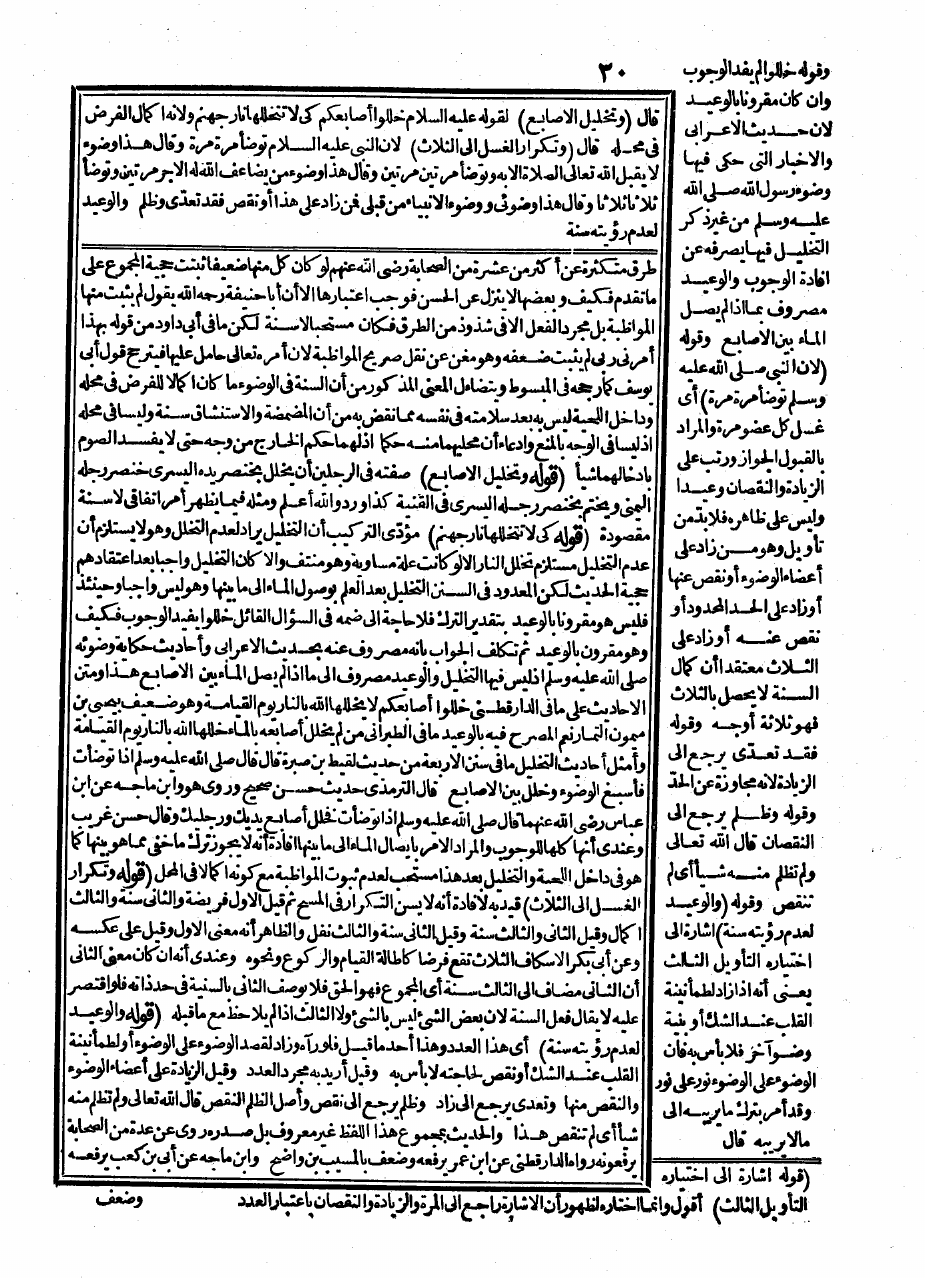 ٣٠
قال (وتخليل الاصابع) لقوله عليه السلام خللوا أصابعكم كى لا تتخللها نار جهنم ولانه اكمال الفرض
فى محله قال (وتكرار الغسل الى الثلاث) لان النبى عليه السلام توضأ مرة مرة وقال هذا وضوء
لا يقبل الله تعالى الصلاة الا به وتوضأ مرتين مرتين وقال هذا وضوء من يضاعف الله له الاجر مرتين وتوضأ
ثلاثا ثلاثا وقال هذا وضوئى ووضوء الانبياء من قبلى فمن زاد على هذا أو نقص فقد تعدى وظلم والوعيد
لعدم رؤيته سنة
طرق متكثرة عن أكثر من عشرة من الصحابة رضى الله عنهم لو كان كل منها ضعيفا ثبتت حجية المجموع على
ما تقدم فكيف وبعضها لا ينزل عن الحسن فوجب اعتبارها الا أن أبا حنيفة رحمه الله يقول لم يثبت منها
المواظبة بل مجرد الفعل الا فى شذوذ من الطرق فكان مستحبا لا سنة لكن ما فى أبى داود من قوله بهذا
أمرنى ربى لم يثبت ضعفه وهو مغن عن نقل صريح المواظبة لان أمره تعالى حامل عليها فيترجح قول أبى
يوسف كما رجحه فى المبسوط ويتضاءل المعنى المذكور من أن السنة فى الوضوء ما كان اكمالا للفرض فى محله
وداخل اللحية ليس به بعد سلامته فى نفسه مما نقض به من أن المضمضة والاستنشاق سنة وليسا فى محله
اذ ليسا فى الوجه بالمنع وادعاء أن محليهما منه حكما اذ لهما حكم الخارج من وجه حتى لا يفسد الصوم
بادخالهما شيأ (قوله وتخليل الاصابع) صفته فى الرجلين أن يخلل بخنصر يده اليسرى خنصر رجله
اليمنى ويختم بخنصر رجله اليسرى فى القنية كذا ورد والله أعلم ومثله فيما يظهر أمر اتفاقى لا سنة
مقصودة (قوله كى لا تتخللها نار جهنم) مؤدى التركيب أن التخليل يراد لعدم التخلل وهو لا يستلزم أن
عدم التخليل مستلزم تخلل النار الا لو كانت علة مساوية وهو منتف والا كان التخليل واجبا بعد اعتقادهم
حجية الحديث لكن المعدود فى السنن التخليل بعد العلم بوصول الماء الى ما بينها وهو ليس واجبا وحينئذ
فليس هو مقرونا بالوعيد بتقدير الترك فلا حاجة الى ضمه فى السؤال القائل خللوا يفيد الوجوب فكيف
وهو مقرون بالوعيد ثم تكلف الجواب بانه مصروف عنه بحديث الاعرابى وأحاديث حكاية وضوئه
صلى الله عليه وسلم اذ ليس فيها التخليل والوعيد مصروف الى ما اذا لم يصل الماء بين الاصابع هذا ومتن
الاحاديث على ما فى الدارقطنى خللوا أصابعكم لا يخللها الله بالنار يوم القيامة وهو ضعيف بيحيى بن
ميمون التمار نعم المصرح فيه بالوعيد ما فى الطبرانى من لم يخلل أصابعه بالماء خللها الله بالنار يوم القيامة
وأمثل أحاديث التخليل ما فى سنن الاربعة من حديث لقيط بن صبرة قال قال صلى الله عليه وسلم اذا توضأت
فأسبغ الوضوء وخلل بين الاصابع قال الترمذى حديث حسن صحيح وروى هو وابن ماجه عن ابن
عباس رضى الله عنهما قال صلى الله عليه وسلم اذا توضأت فخلل أصابع يديك ورجليك وقال حسن غريب
وعندى أنها كلها للوجوب والمراد الامر بايصال الماء الى ما بينها افادة أنه لا يجوز ترك ما خفى مما هو بينها كما
هو فى داخل اللحية والتخليل بعد هذا مستحب لعدم ثبوت المواظبة مع كونه اكمالا فى المحل (قوله وتكرار
الغسل الى الثلاث) قيد به لافادة أنه لا يسن التكرار فى المسح ثم قيل الاول فريضة والثانى سنة والثالث
اكمال وقيل الثانى والثالث سنة وقيل الثانى سنة والثالث نفل والظاهر أنه معنى الاول وقيل على عكسه
وعن أبى بكر الاسكاف الثلاث تقع فرضا كاطالة القيام والركوع ونحوه وعندى أنه ان كان معنى الثانى
أن الثانى مضاف الى الثالث سنة أى المجموع فهو الحق فلا يوصف الثانى بالسنية فى حد ذاته فلو اقتصر
عليه لا يقال فعل السنة لان بعض الشئ ليس بالشئ ولا الثالث اذا لم يلاحظ مع ما قبله (قوله والوعيد
لعدم رؤيته سنة) أى هذا العدد وهذا أحد ما قيل فلو رآه وزاد لقصد الوضوء على الوضوء أو لطمأنينة
القلب عند الشك أو نقص لحاجة لا بأس به وقيل أريد به مجرد العدد وقيل الزيادة على أعضاء الوضوء
والنقص منها وتعدى يرجع الى زاد وظلم يرجع الى نقص وأصل الظلم النقص قال الله تعالى ولم تظلم منه
شيأ أى لم تنقص هذا والحديث بمجموع هذا اللفظ غير معروف بل صدره روى عن عدة من الصحابة
يرفعونه رواه الدارقطنى عن ابن عمر يرفعه وضعف بالمسيب بن واضح وابن ماجه عن أبى بن كعب يرفعه
وضعف
وقوله خللوا لم يفد الوجوب
وان كان مقرونا بالوعيد
لان حديث الاعرابى
والاخبار التى حكى فيها
وضوء رسول الله صلى الله
عليه وسلم من غير ذكر
التخليل فيها يصرفه عن
افادة الوجوب والوعيد
مصروف بما اذا لم يصل
الماء بين الاصابع وقوله
(لان النبى صلى الله عليه
وسلم توضأ مرة مرة) أى
غسل كل عضو مرة والمراد
بالقبول الجواز ورتب على
الزيادة والنقصان وعيدا
وليس على ظاهره فلا بد من
تأويل وهو من زاد على
أعضاء الوضوء أو نقص عنها
أو زاد على الحد المحدود أو
نقص عنه أو زاد على
الثلاث معتقدا أن كمال
السنة لا يحصل بالثلاث
فهو ثلاثة أوجه وقوله
فقد تعدى يرجع الى
الزيادة لانه مجاوزة عن الحد
وقوله وظلم يرجع الى
النقصان قال الله تعالى
ولم تظلم منه شيأ أى لم
تنقص وقوله (والوعيد
لعدم رؤيته سنة) اشارة الى
اختياره التأويل الثالث
يعنى أنه اذا زاد لطمأنينة
القلب عند الشك أو بنية
وضوء آخر فلا بأس به فان
الوضوء على الوضوء نور على نور
وقد أمر بترك ما يريبه الى
ما لا يريبه قال
(قوله اشارة الى اختياره
التأويل الثالث) أقول وانما اختاره لظهور أن الاشارة راجع الى المرة والزيادة والنقصان باعتبار العدد